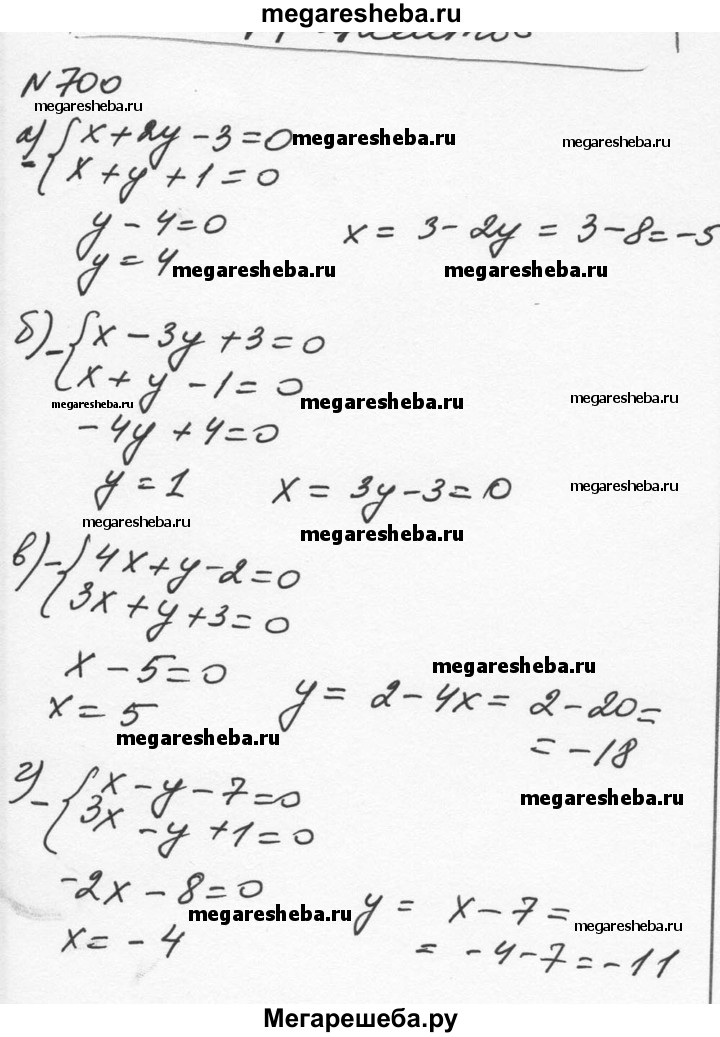 megaresheba.ru
N 700
megaresheba.ru
а) - { x + 2y - 3 = 0 megaresheba.ru megaresheba.ru
x + y + 1 = 0
y - 4 = 0 x = 3 - 2y = 3 - 8 = -5
y = 4 megaresheba.ru megaresheba.ru
б) - { x - 3y + 3 = 0
x + y - 1 = 0
megaresheba.ru megaresheba.ru megaresheba.ru
-4y + 4 = 0
y = 1 x = 3y - 3 = 0 megaresheba.ru
megaresheba.ru megaresheba.ru
в) - { 4x + y - 2 = 0
3x + y + 3 = 0
x - 5 = 0 megaresheba.ru
x = 5 y = 2 - 4x = 2 - 20 =
megaresheba.ru = -18
г) - { x - y - 7 = 0
3x - y + 1 = 0 megaresheba.ru
-2x - 8 = 0
megaresheba.ru y = x - 7 = megaresheba.ru
x = -4 = -4 - 7 = -11
Мегарешеба.ру